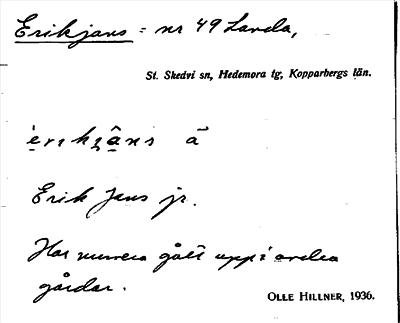 Erikjans = nr 49 Landa,
St. Skedvi sn, Hedemora tg, Kopparbergs län.
Erik Jans jr.
Har numera gått upp i andra
gårdar.
OLLE HILLNER, 1936.